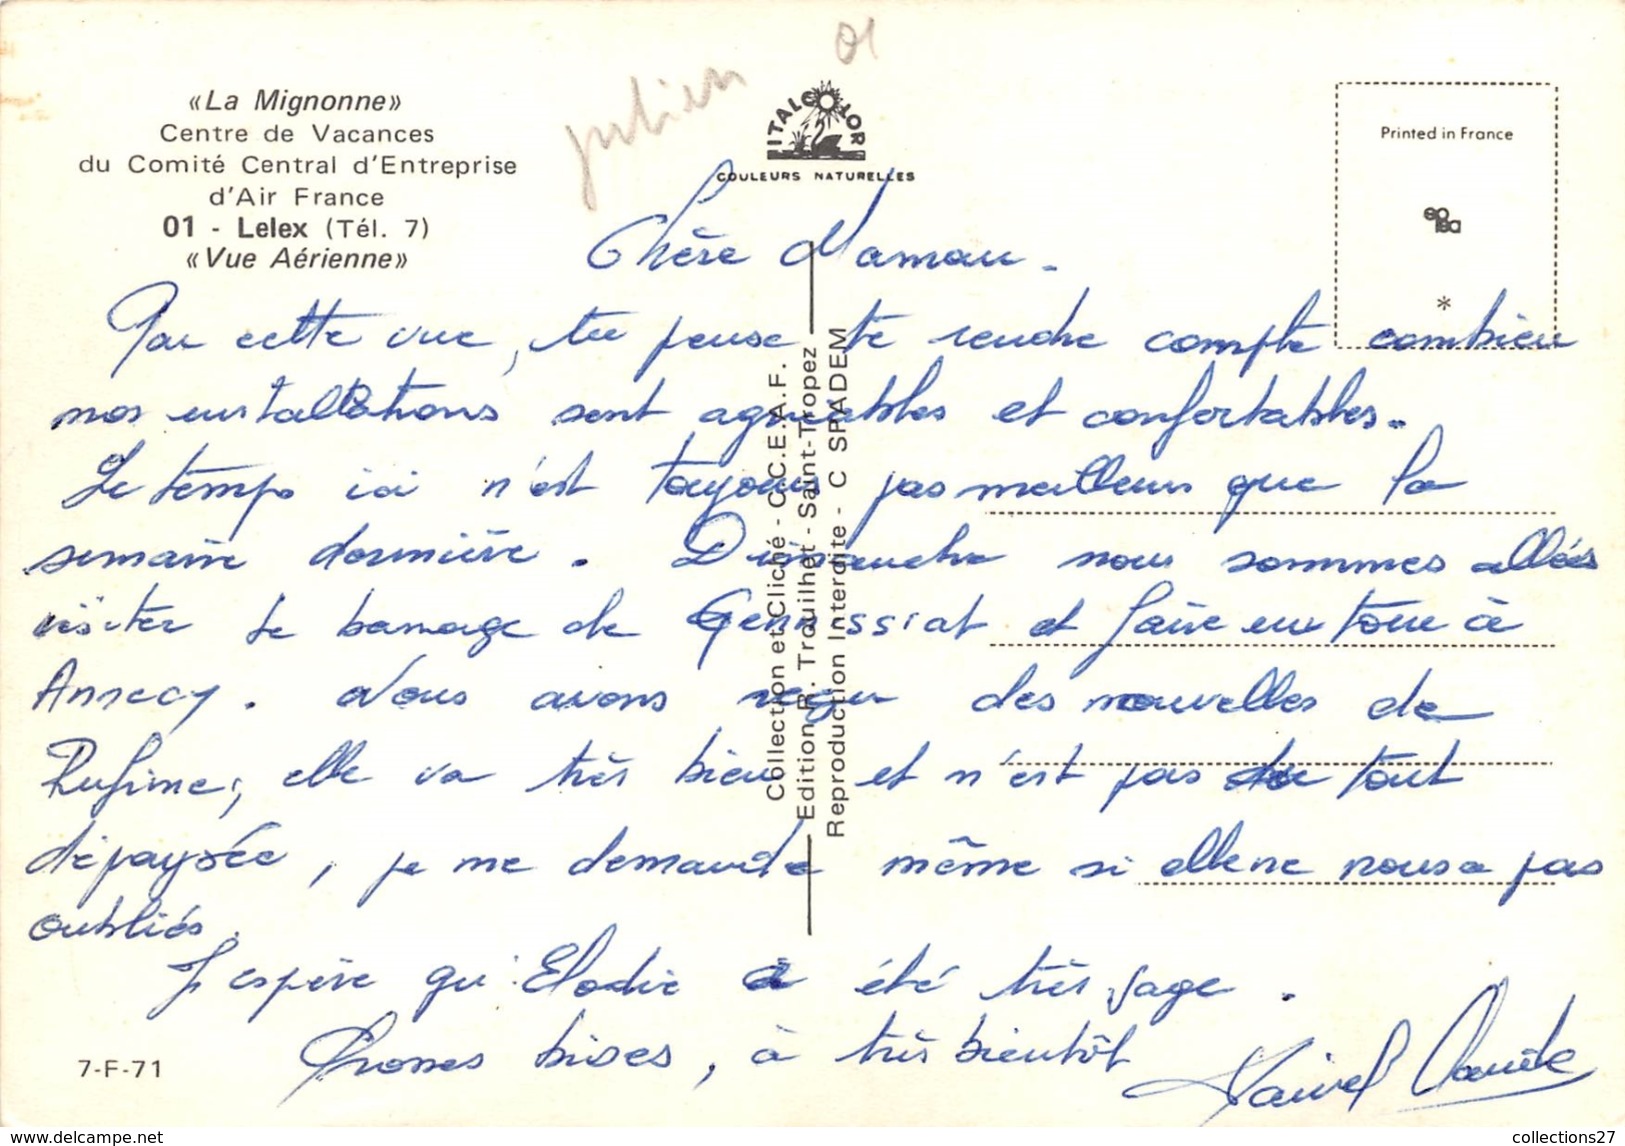 «La Mignonne»
Centre de Vacances
du Comité Central d'Entreprise
d'Air France
01 - Lelex (Tél. 7)
«Vue Aérienne»
julien 01
ITALCOLOR
COULEURS NATURELLES
Printed in France
*
Chère Maman.
Par cette vue, tu peux te rendre compte combien
nos installations sont agréables et confortables.
Le temps ici n'est toujours pas meilleur que la
semaine dernière. Dimanche nous sommes allés
visiter le barrage de Génissiat et faire un tour à
Annecy. Nous avons reçu des nouvelles de
elle va très bien et n'est pas du tout
dépaysée, je me demande même si elle ne nous a pas
oubliés.
J'espère qu'Elodie a été très sage.
Grosses bises, à très bientôt
Collection et Cliché - C.C.E.A.F.
Edition R. Trauilhet - Saint-Tropez
Reproduction Interdite - C SPADEM
7-F-71
collections27